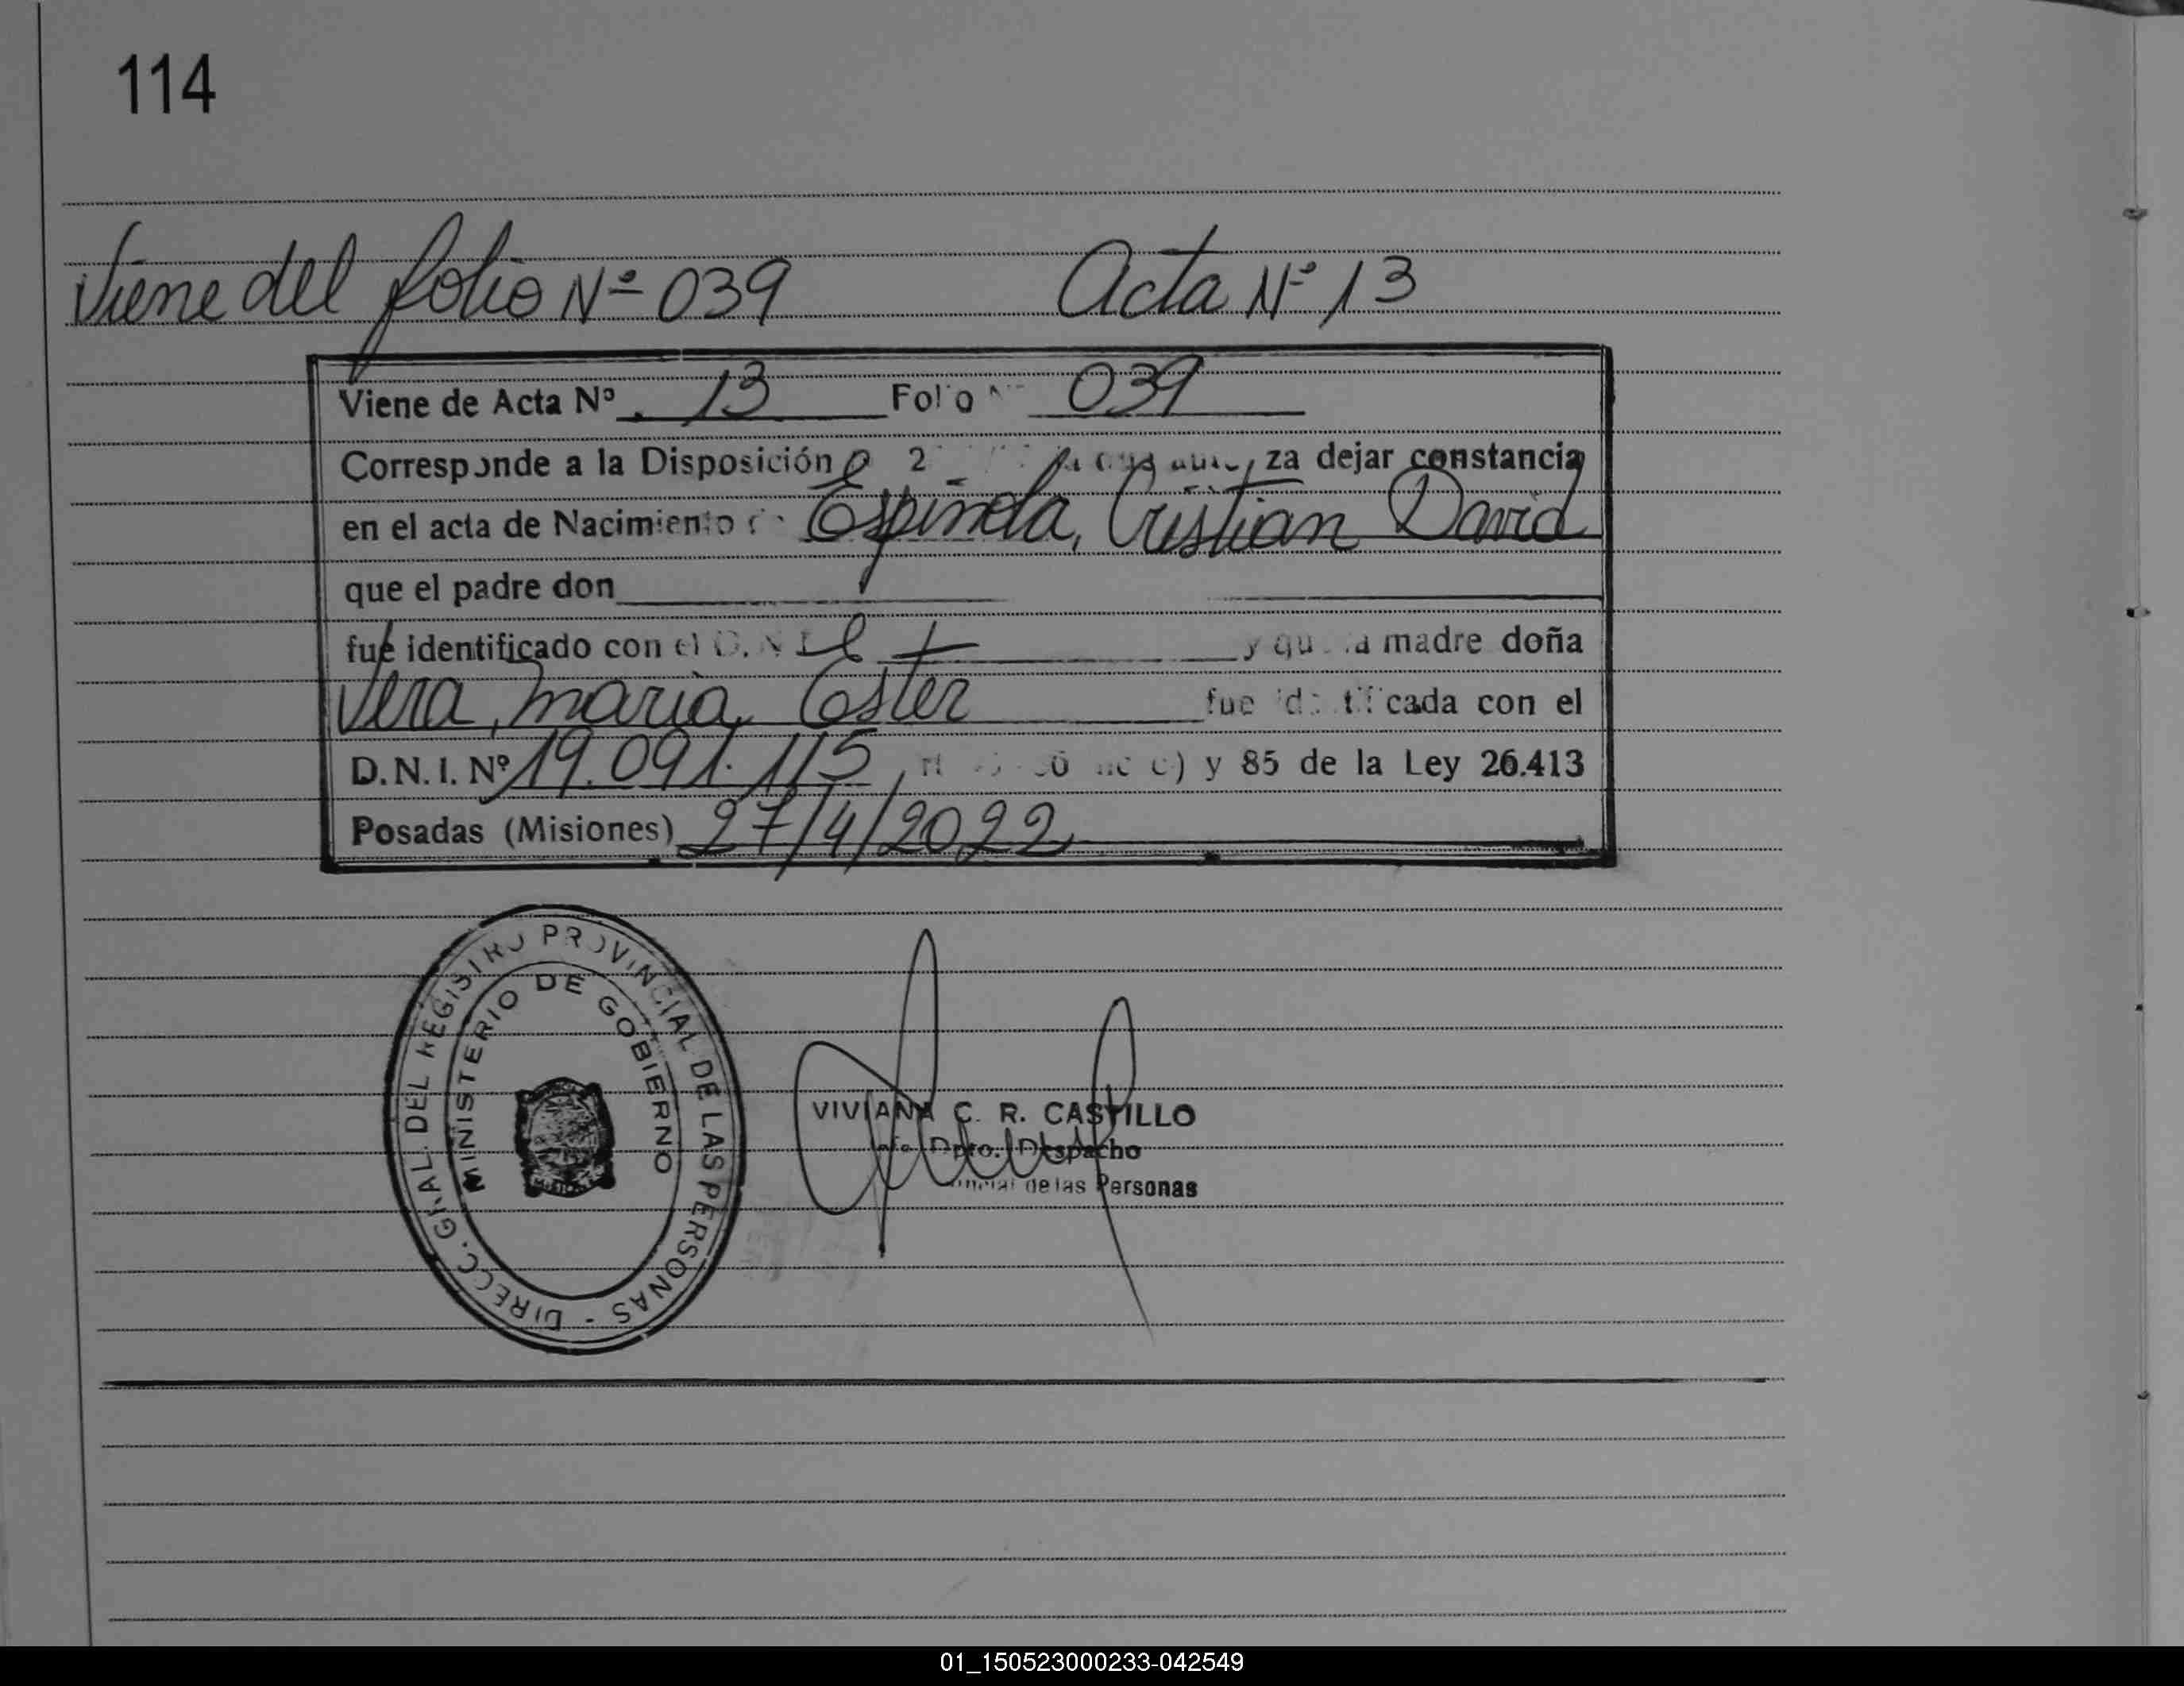 114
Viene del folio Nº 039 Acta Nº 13
Viene de Acta Nº 13 Folio 039
Corresponde a la Disposición 2 za dejar constancia
en el acta de Nacimiento Espinola, Cristian David
que el padre don
fué identificado con el D.N.I. y que la madre doña
Vera, maria, Ester fue identificada con el
D.N.I. Nº 19.091.115, c) y 85 de la Ley 26.413
Posadas (Misiones) 27/4/2022
DIRECC. GRAL. DEL REGISTRO PROVINCIAL DE LAS PERSONAS -
MINISTERIO DE GOBIERNO
VIVIANA C. R. CASTILLO
Dpto. Despacho
de las Personas
01_150523000233-042549